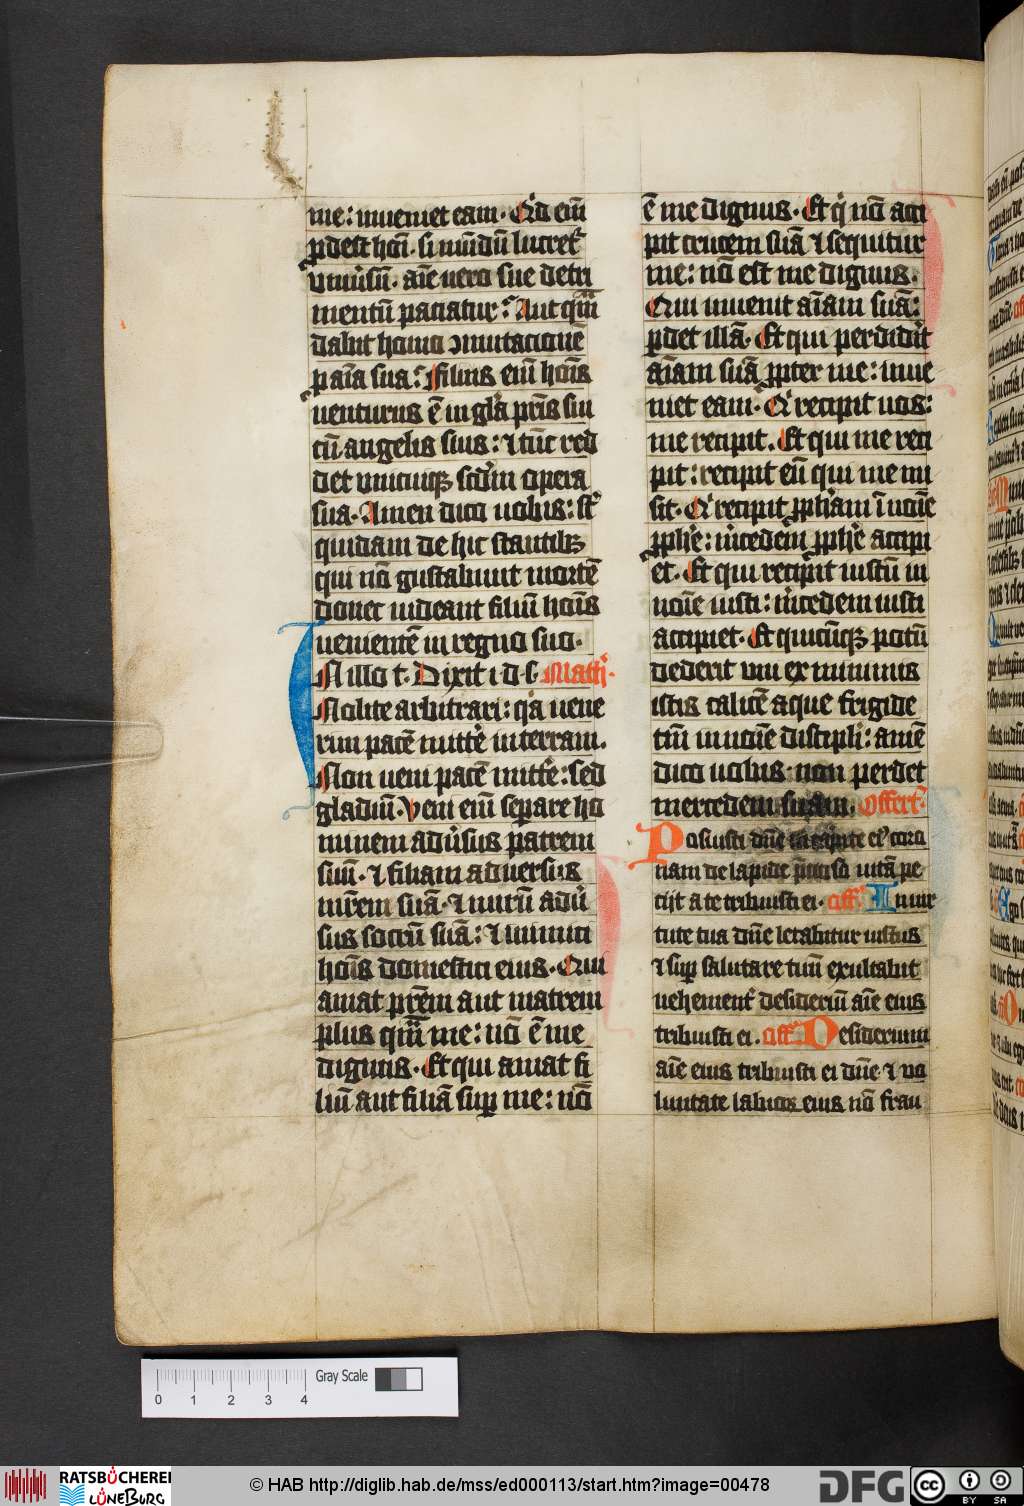 me: inveniet eam. Qd̾ eni̅
ꝓdest ho̅i. si mu̅du̅ lucret᷑
univ̾su̅. ai̅e vero sue detri
mentu̅ paciatur? Aut qua̅
dabit homo ꝯmutacione̅
ꝑ ai̅a sua? Filius eni̅ ho̅is
venturus e̅ in gl̾a pr̅is sui
cu̅ angelis suis: ⁊ tu̅c red
det unicuiqꝫ scd̾m opera
sua. Amen dico vobis: st̾
quidam de hic stantibꝫ
qui no̅ gustabunt morte̅
donec videant filiu̅ ho̅is
veniente̅ in regno suo.
In illo t. Dixit i. d. s. Math̾.
Nolite arbitrari: qa vene
rim pace̅ mitt̾e in terram.
Non veni pace̅ mitt̾e: sed
gladiu̅. Veni eni̅ seꝑare ho
minem adv̾sus patrem
suu̅. ⁊ filiam adversus
mr̅em sua̅. ⁊ nuru̅ adv̾
sus socru̅ sua̅: ⁊ inimici
ho̅is domestici eius. Qui
amat pr̅em aut matrem
plus qua̅ me: no̅ e̅ me
dignus. Et qui amat fi
liu̅ aut filia̅ suꝑ me: no̅
e̅ me dignus. Et q̾ no̅ acci
pit crucem sua̅ ⁊ sequitur
me: no̅ est me dignus.
Qui invenit ai̅am sua̅:
ꝑdet illa̅. Et qui perdid̾it
ai̅am sua̅ ꝓpter me: inve
niet eam. Q̾ recipit vos:
me recipit. Et qui me reci
pit: recipit eu̅ qui me mi
sit. Q̾ recipit ꝓph̾am i̅ noi̅e
ꝓph̾e: m̾cede̅m ꝓph̾e accipi
et. Et qui recip̾it iustu̅ in
noi̅e iusti: m̾cedem iusti
accipiet. Et quicu̅qꝫ potu̅
dederit uni ex minimis
istis calice̅ aque frigide
tm̅ in noi̅e discipli: ame̅
dico vobis. non perdet
mercedem suam. Offert̾.
Posuisti dn̅e in capite eiꝰ coro
nam de lapide p̅cioso vita̅ pe
cijt a te tribuisti ei. aff. In vir
tute tua dn̅e letabitur iustus
⁊ suꝑ salutare tuu̅ exultabit
vehement̾ desideriu̅ ai̅e eius
tribuisti ei. aff. Desiderium
ai̅e eius tribuisti ei dn̅e ⁊ vo
luntate labioꝝ eius no̅ frau
0 1 2 3 4
Gray Scale
RATSBÜCHEREI
LÜNEBURG
© HAB http://diglib.hab.de/mss/ed000113/start.htm?image=00478
DFG
cc BY SA